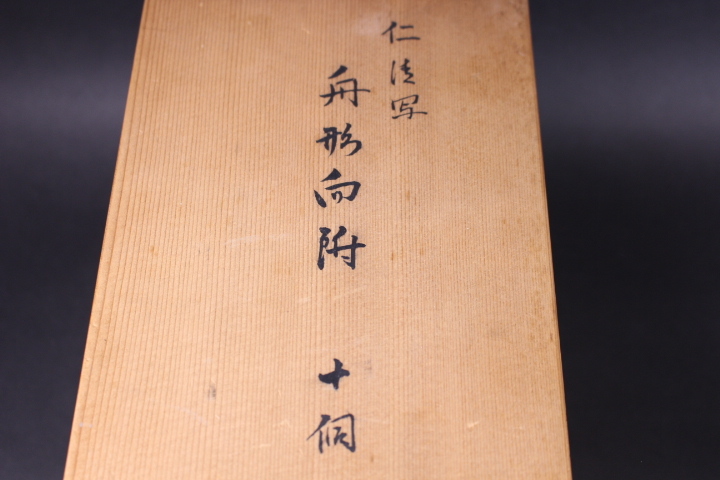 仁清写
舟形向附 十個